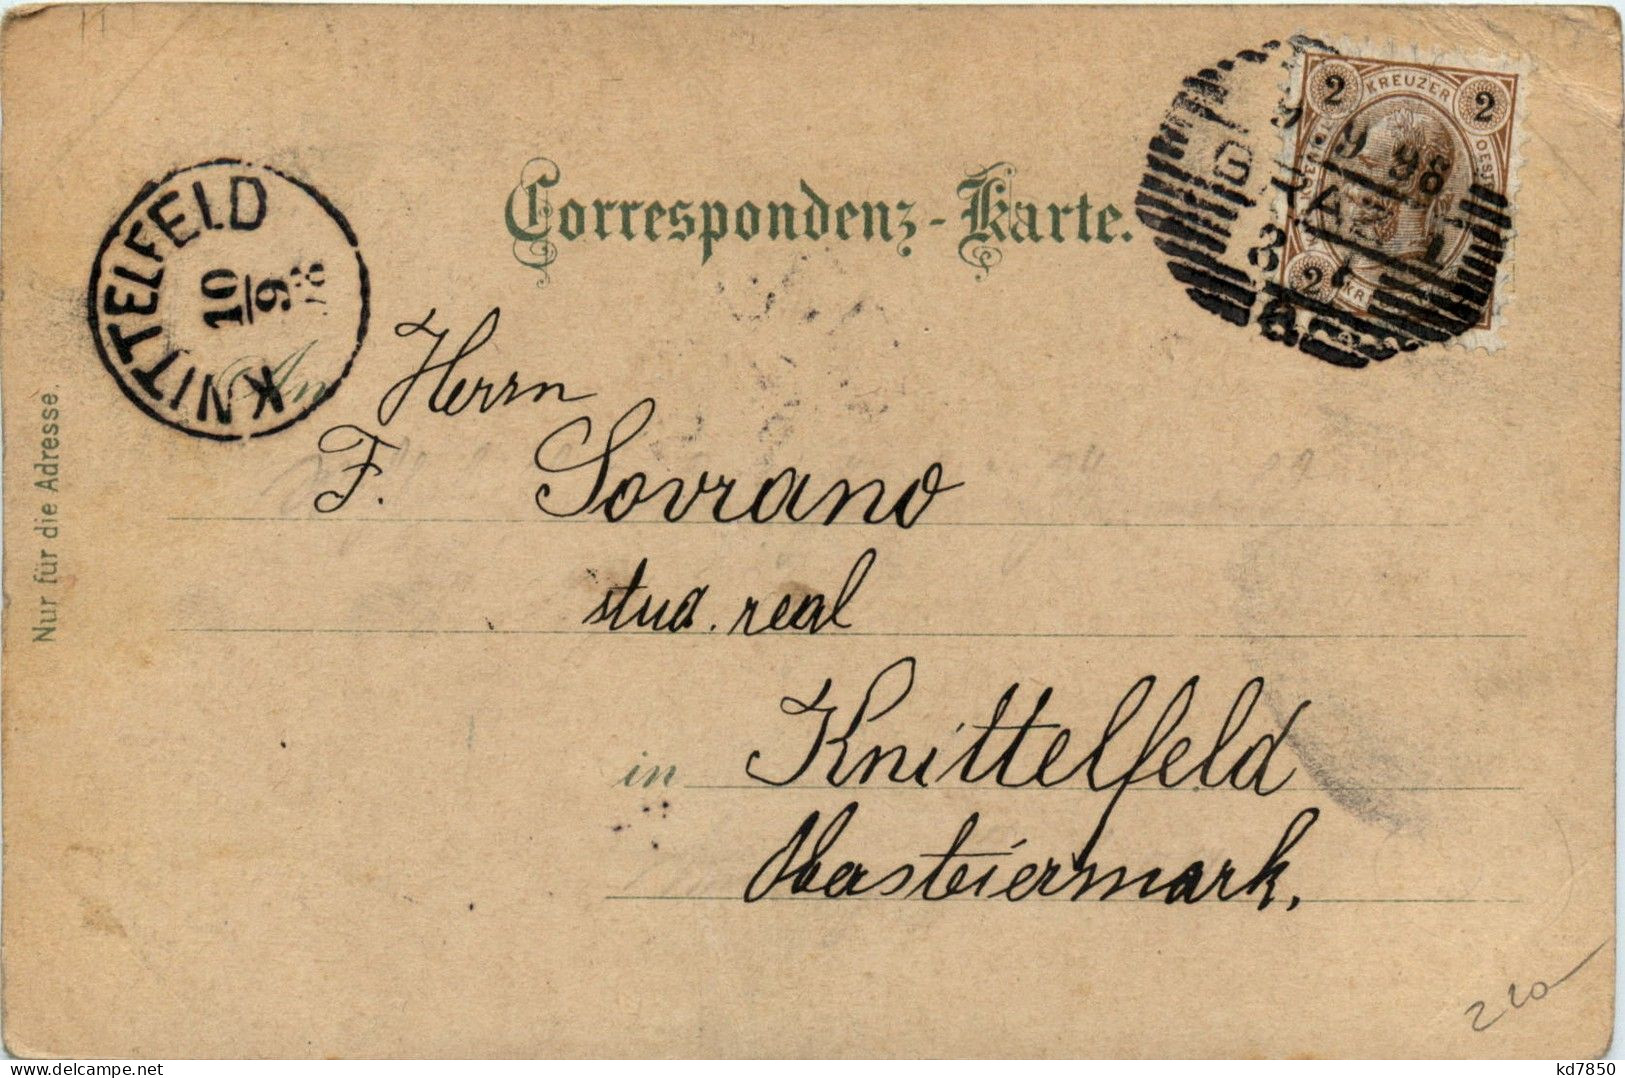 Correspondenz-Karte.
KREUZER
2 2
9 9 98
2
KNITTELFELD
10
9
98
An Herrn
F. Sovrano
stud. real
in Knittelfeld
Obersteiermark.
Nur für die Adresse.
220
delcampe.net
kd7850